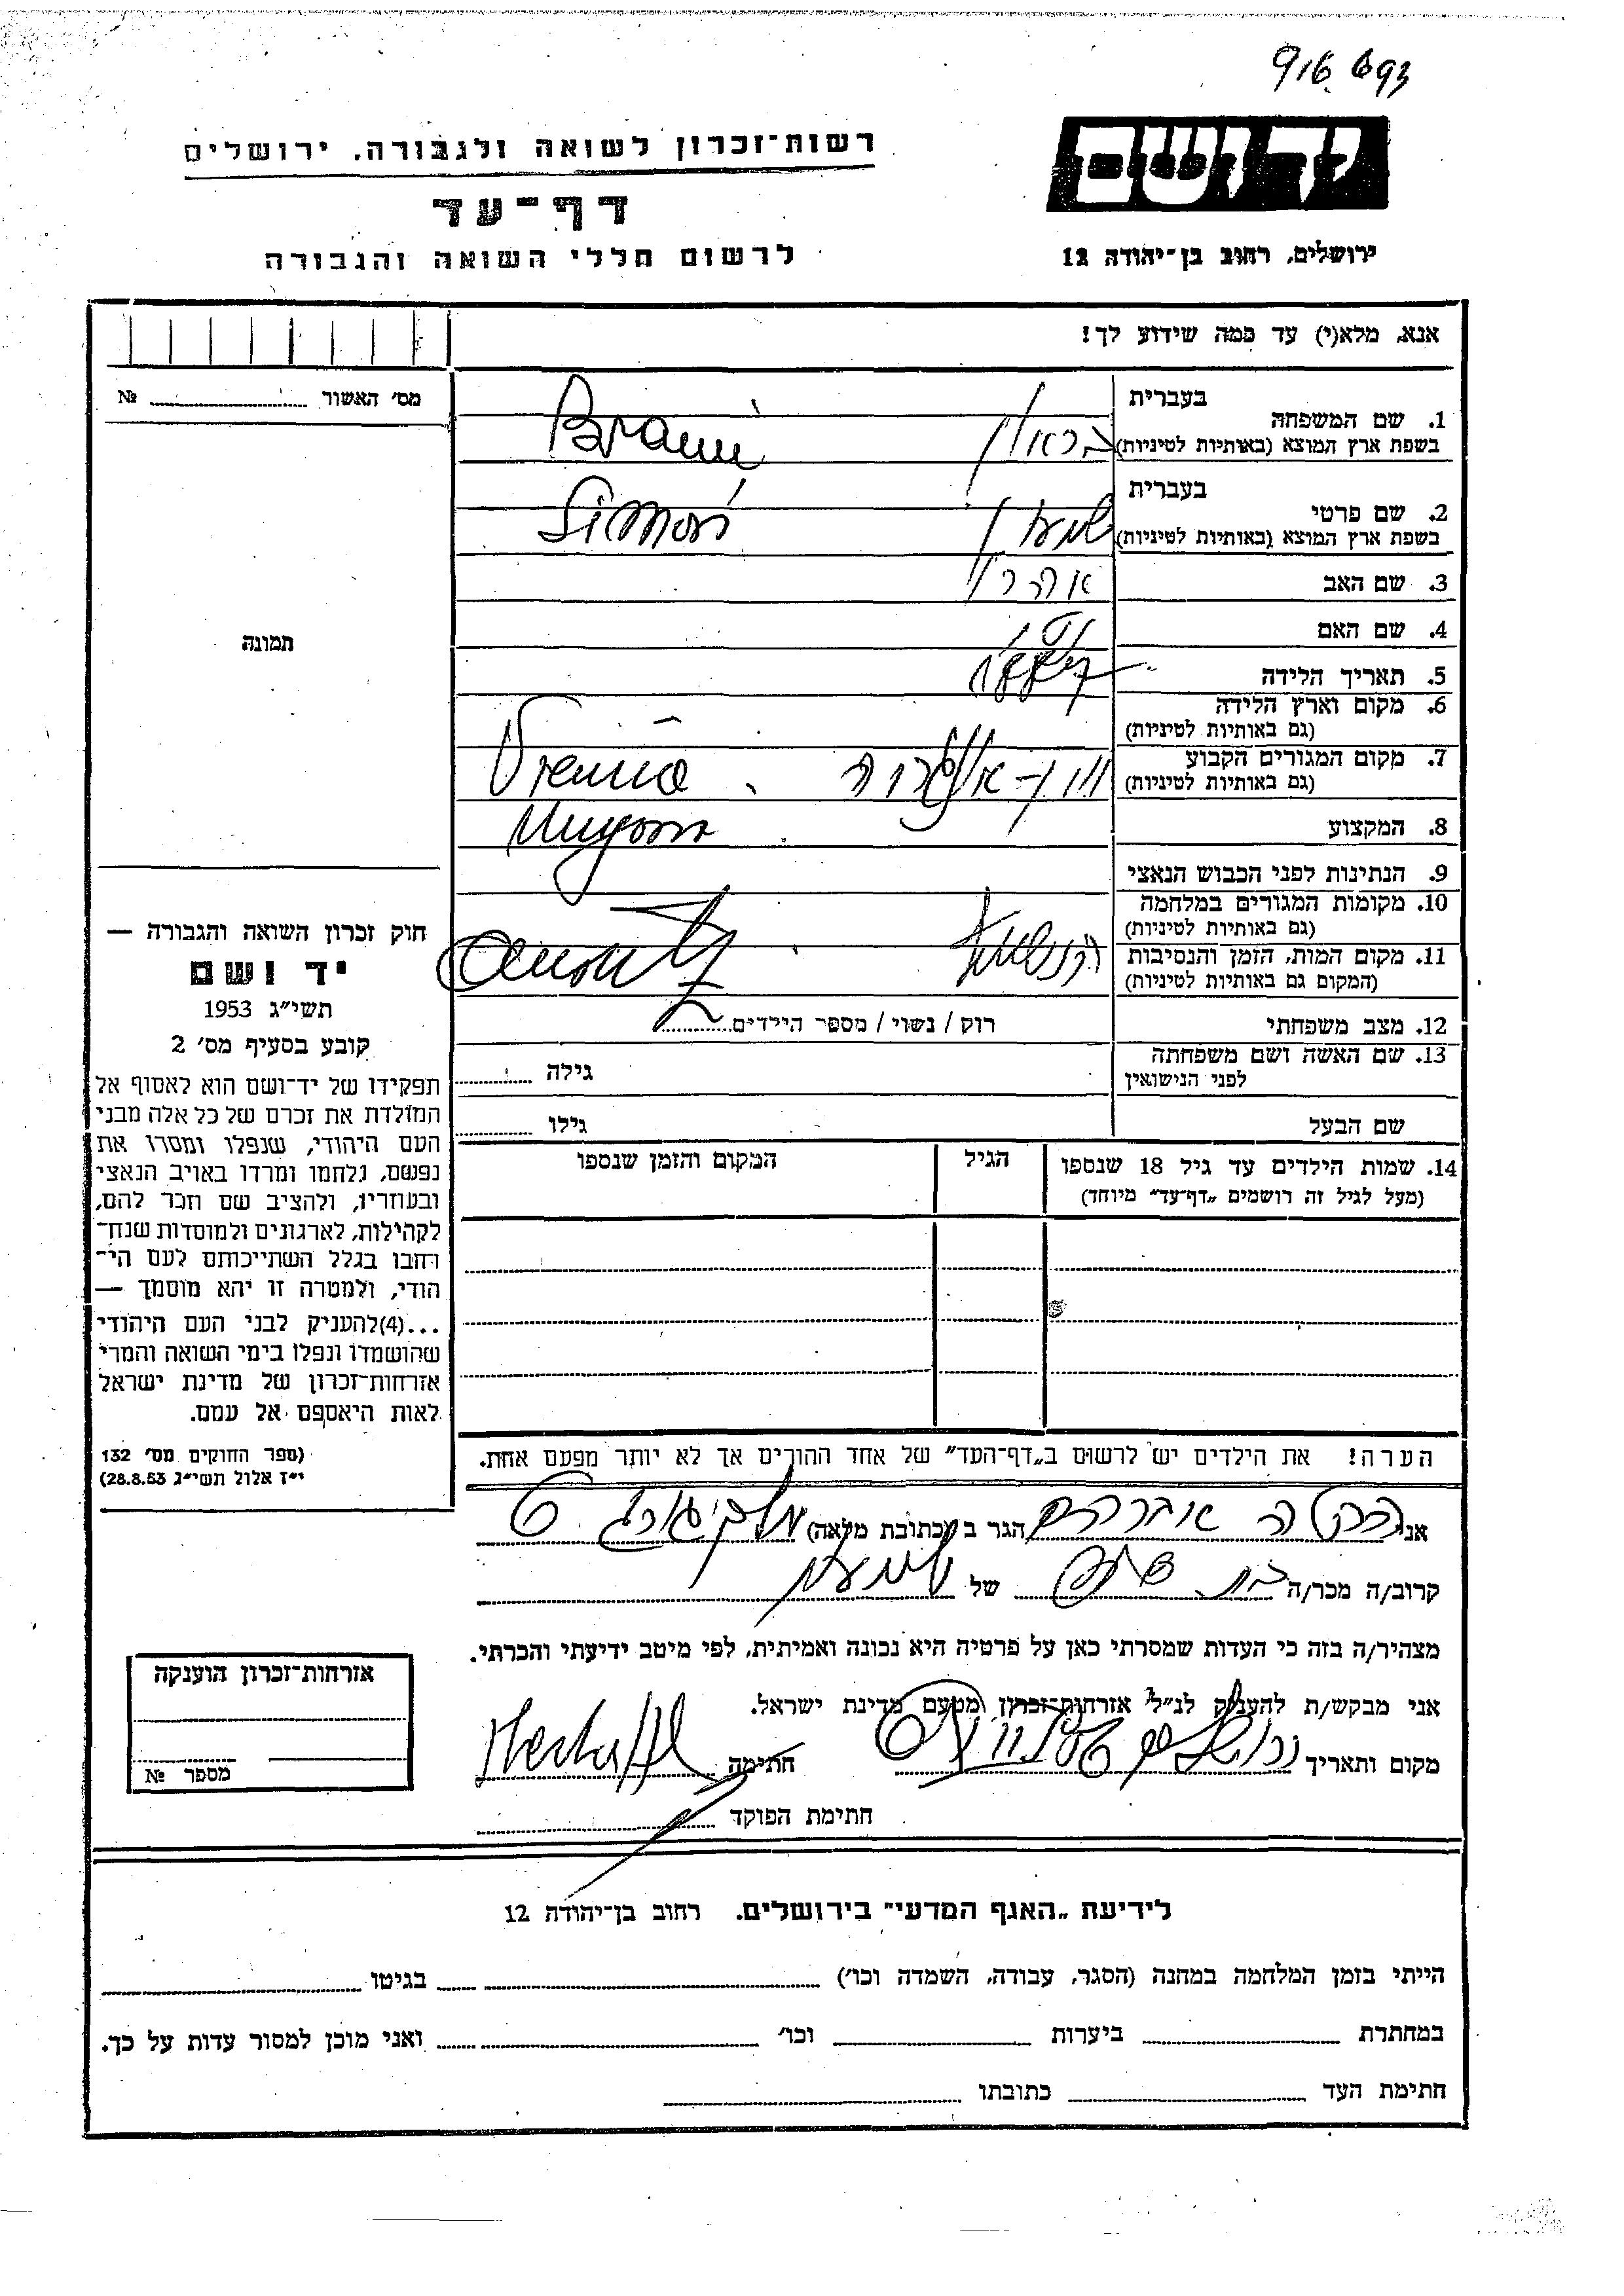 916.693
יד ושם
רשות־זכרון לשואה ולגבורה, ירושלים
דף־עד
לרשום חללי השואה והגבורה
ירושלים, רחוב בן־יהודה 12
אנא, מלא(י) עד כמה שידוע לך!
מס' האשור № 
תמונה
1. שם המשפחה
בעברית בראון
בשפת ארץ המוצא (באותיות לטיניות) Braun
2. שם פרטי
בעברית שמעון
בשפת ארץ המוצא (באותיות לטיניות) Simon
3. שם האב אהרן
4. שם האם
5. תאריך הלידה 1887
6. מקום וארץ הלידה
(גם באותיות לטיניות)
7. מקום המגורים הקבוע
(גם באותיות לטיניות) Vienna
8. המקצוע
9. הנתינות לפני הכבוש הנאצי
10. מקומות המגורים במלחמה
(גם באותיות לטיניות)
11. מקום המות, הזמן והנסיבות
(המקום גם באותיות לטיניות)
12. מצב משפחתי רוק / נשוי / מספר הילדים
13. שם האשה ושם משפחתה
לפני הנישואין גילה
שם הבעל גילו
14. שמות הילדים עד גיל 18 שנספו
(מעל לגיל זה רושמים „דף־עד" מיוחד)
הגיל
המקום והזמן שנספו
הערה! את הילדים יש לרשום ב„דף־העד" של אחד ההורים אך לא יותר מפעם אחת.
חוק זכרון השואה והגבורה —
יד ושם
תשי"ג 1953
קובע בסעיף מס' 2
תפקידו של יד־ושם הוא לאסוף אל
המולדת את זכרם של כל אלה מבני
העם היהודי, שנפלו ומסרו את
נפשם, נלחמו ומרדו באויב הנאצי
ובעוזריו, ולהציב שם וזכר להם,
לקהילות, לארגונים ולמוסדות שנח־
רחבו בגלל השתייכותם לעם הי־
הודי, ולמטרה זו יהא מוסמך —
...(4)להעניק לבני העם היהודי
שהושמדו ונפלו בימי השואה והמרי
אזרחות־זכרון של מדינת ישראל
לאות היאספם אל עמם.
(ספר החוקים מס' 132
י"ז אלול תשי"ג 28.8.53)
אני הגר ב (כתובת מלאה)
קרוב/ה מכר/ה של שמעון
מצהיר/ה בזה כי העדות שמסרתי כאן על פרטיה היא נכונה ואמיתית, לפי מיטב ידיעתי והכרתי.
אני מבקש/ת להעניק לנ"ל אזרחות־זכרון מטעם מדינת ישראל.
מקום ותאריך חתימה
חתימת הפוקד
אזרחות־זכרון הוענקה
מספר №
לידיעת „האגף המדעי" בירושלים. רחוב בן־יהודה 12
הייתי בזמן המלחמה במחנה (הסגר, עבודה, השמדה וכו') בגיטו
במחתרת ביערות וכו' ואני מוכן למסור עדות על כך.
חתימת העד כתובתו